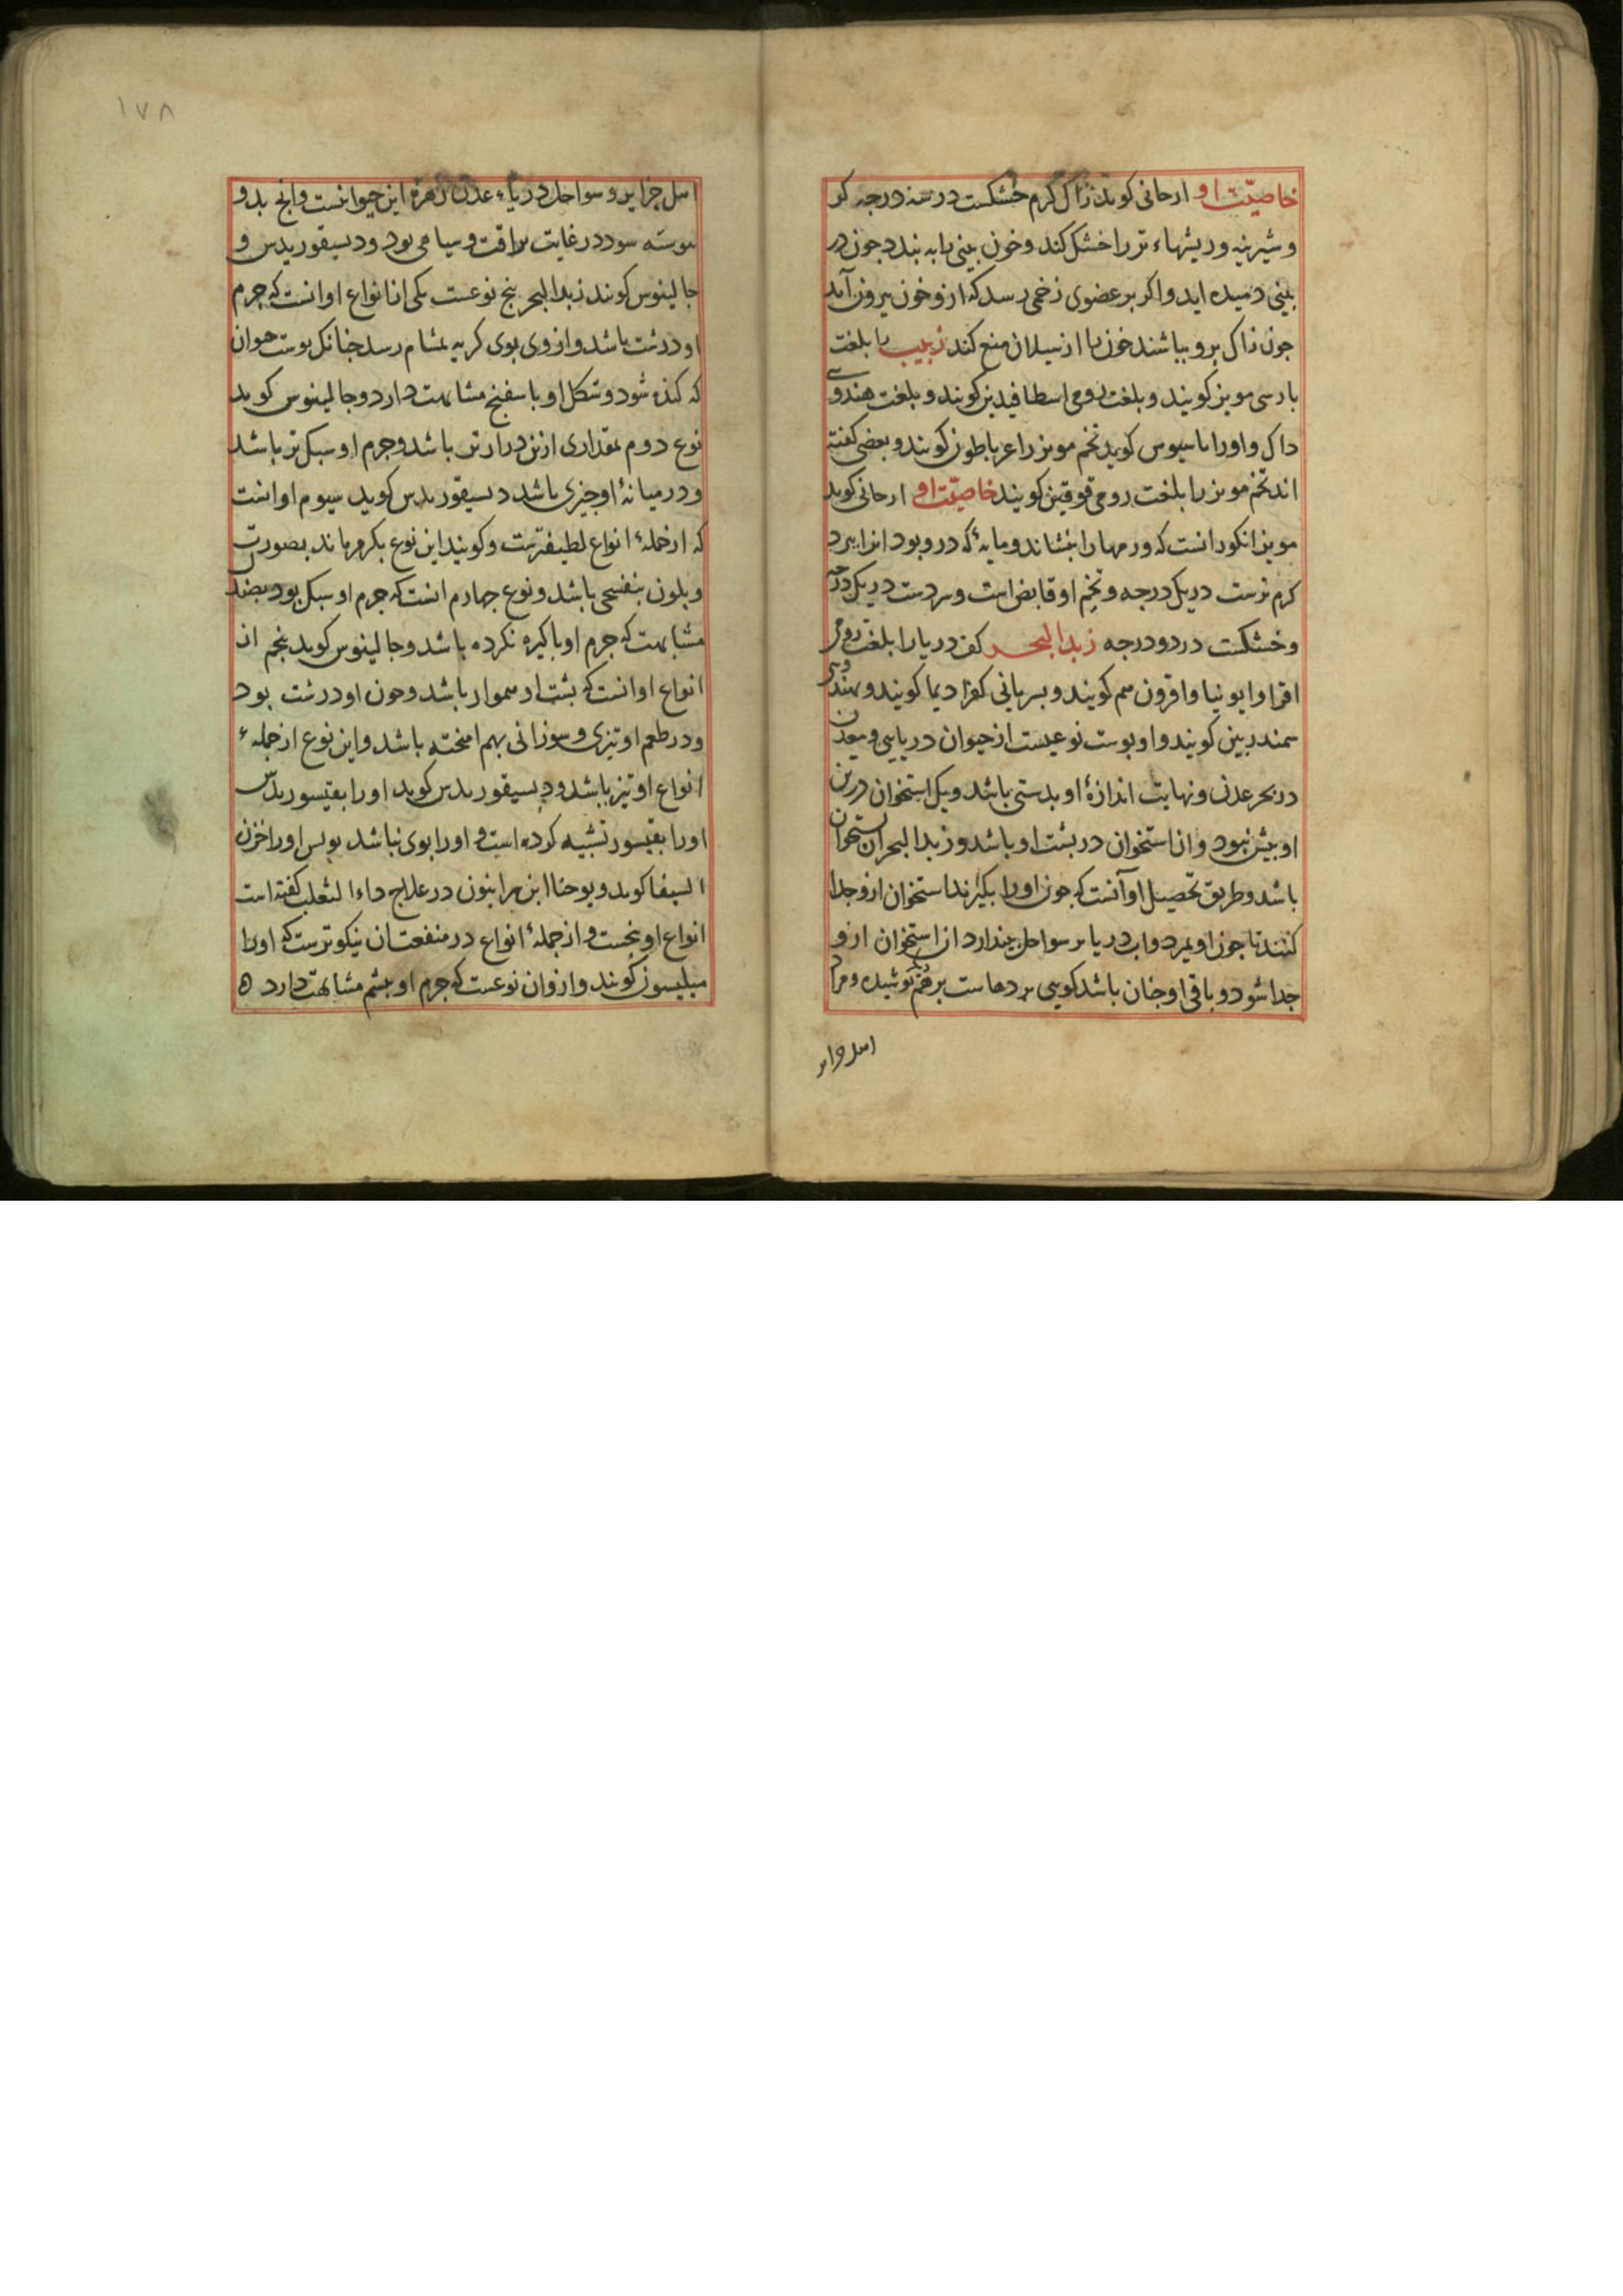 خاصیّت او ارحانی کوید زاک کرم خشکست در سه درجه کر
و شیرینه و ریشهاء تر را خشک کند و خون بینی را به بندد جون در
بینی دمیده اید و اکر بر عضوی زخمی رسد که ازو خون بیرون آید
جون زاک برو بباشند خون را از سیلان منع کند زبیب را بلغت
بارسی مویز کویند و بلغت رومی اسطافیدیز کویند و بلغت هندوی
داک و اورا باسیوس کوید تخم مویز را عرباطون کویند و بعضی کفته
اند تخم مویز را بلغت رومی قوقین کویند خاصیّت او ارحانی کوید
مویز انکور انست که ورمها را بنشاند و مایهٔ که درو بود انرا ببرد
کرم ترست در یک درجه و تخم او قابض است و سردست در یک درجه
و خشکست در دو درجه زبد البحر کف دریا را بلغت رومی
افرا وابو نیا وافرون سم کویند و بسریانی کفرا دیما کویند و بهندوی
سمندر بین کویند و او بوست نوعیست از حیوان دریایی و معدن
در بحر عدن و نهایت اندازهٔ او بدستی باشد و یک استخوان درین
او بیش نبود و ان استخوان در بشت او باشد و زبد البحر ان استخوان
باشد و طریق تحصیل او آنست که جون اورا بکیرند استخوان ازو جدا
کنند تا جون او بمرد و اب دریا بر سواحل بیندازد ان استخوان ازو
جدا شود و باقی او جنان باشد کویی بردهاست برهم بوشیده و مر
اهل جزایر
اهل جزایر و سواحل دریاء عدن زهرهٔ این حیوانست و انج بدو
نبوشته شود در غایت براقت و سیاهی بود و دیسقوریدس و
جالینوس کویند زبد البحر بنج نوعست یکی از انواع او انست که جرم
او درشت باشد و از وی بوی کریه بمشام رسد جنانک بوست حیوان
که کنده شود و شکل او با سفنج مشابهت دارد و جالینوس کوید
نوع دوم بمقداری ازین درازتر باشد و جرم او سبک تر باشد
و در میانهٔ او جیزی باشد دیسقوریدس کوید سیوم او انست
که از جملهٔ انواع لطیفترست و کویند این نوع بکرم ماند بصورت
و بلون بنفسجی باشد و نوع جهارم انست که جرم او سبک بود بصفت
مشابهت که جرم او باکیزه نکرده باشد و جالینوس کوید بنجم از
انواع او انست که بشت او هموار باشد و درون او درشت بود
و در طعم او تیزی و سوزانی بهم امیخته باشد و این نوع از جملهٔ
انواع او تیز باشد و دیسقوریدس کوید اورا بقیسور بدس
اورا بقیسور تشبیه کرده است و اورا بوی نباشد بولس اورا خزن
السیفا کوید و یوحنا ابن سرابیون در علاج داء الثعلب کفته است
انواع او بنجست و از جملهٔ انواع در منفعت ان نیکوترست که اورا
میلیسون کویند و از وان نوعست که جرم او بشم مشابهت دارد ه
۱۷۸